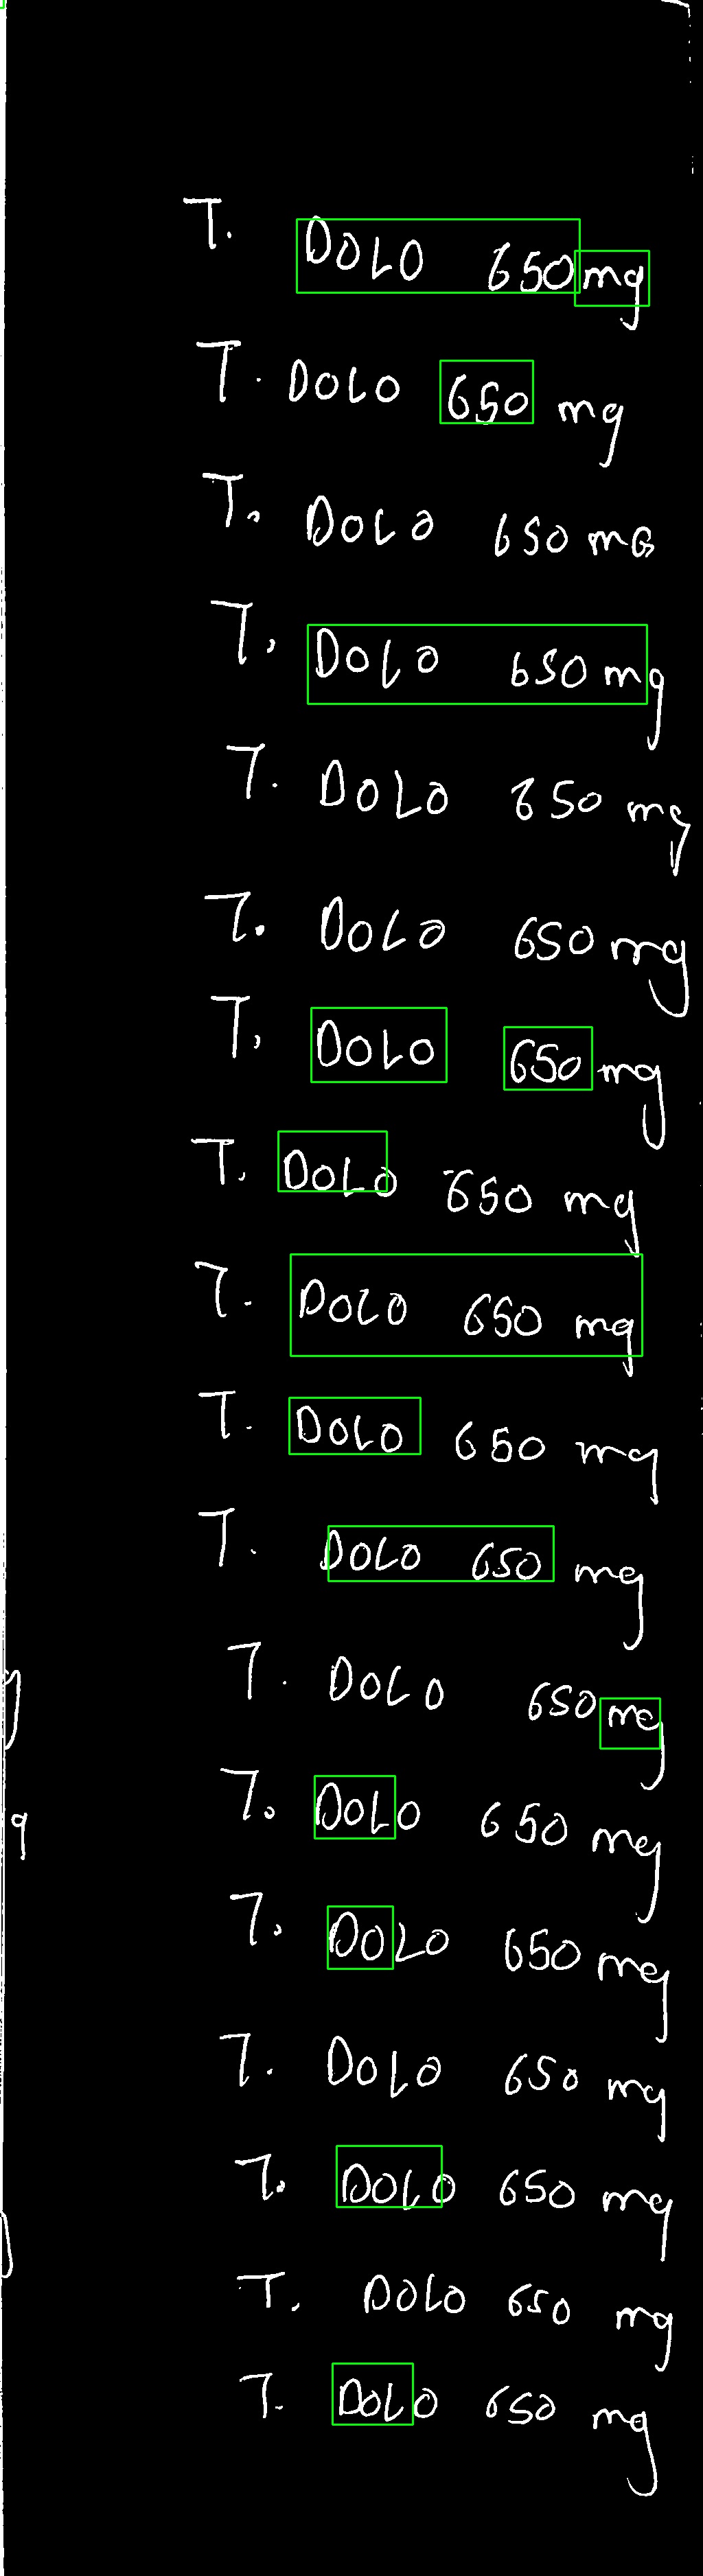 T. DOLO 650 mg
T. DOLO 650 mg
T. DOLO 650 mG
T. DOLO 650 mg
T. DOLO 650 mg
T. DOLO 650 mg
T. DOLO 650 mg
T. DOLO 650 mg
T. DOLO 650 mg
T. DOLO 650 mg
T. DOLO 650 mg
T. DOLO 650 mg
T. DOLO 650 mg
T. DOLO 650 mg
T. DOLO 650 mg
T. DOLO 650 mg
T. DOLO 650 mg
T. DOLO 650 mg